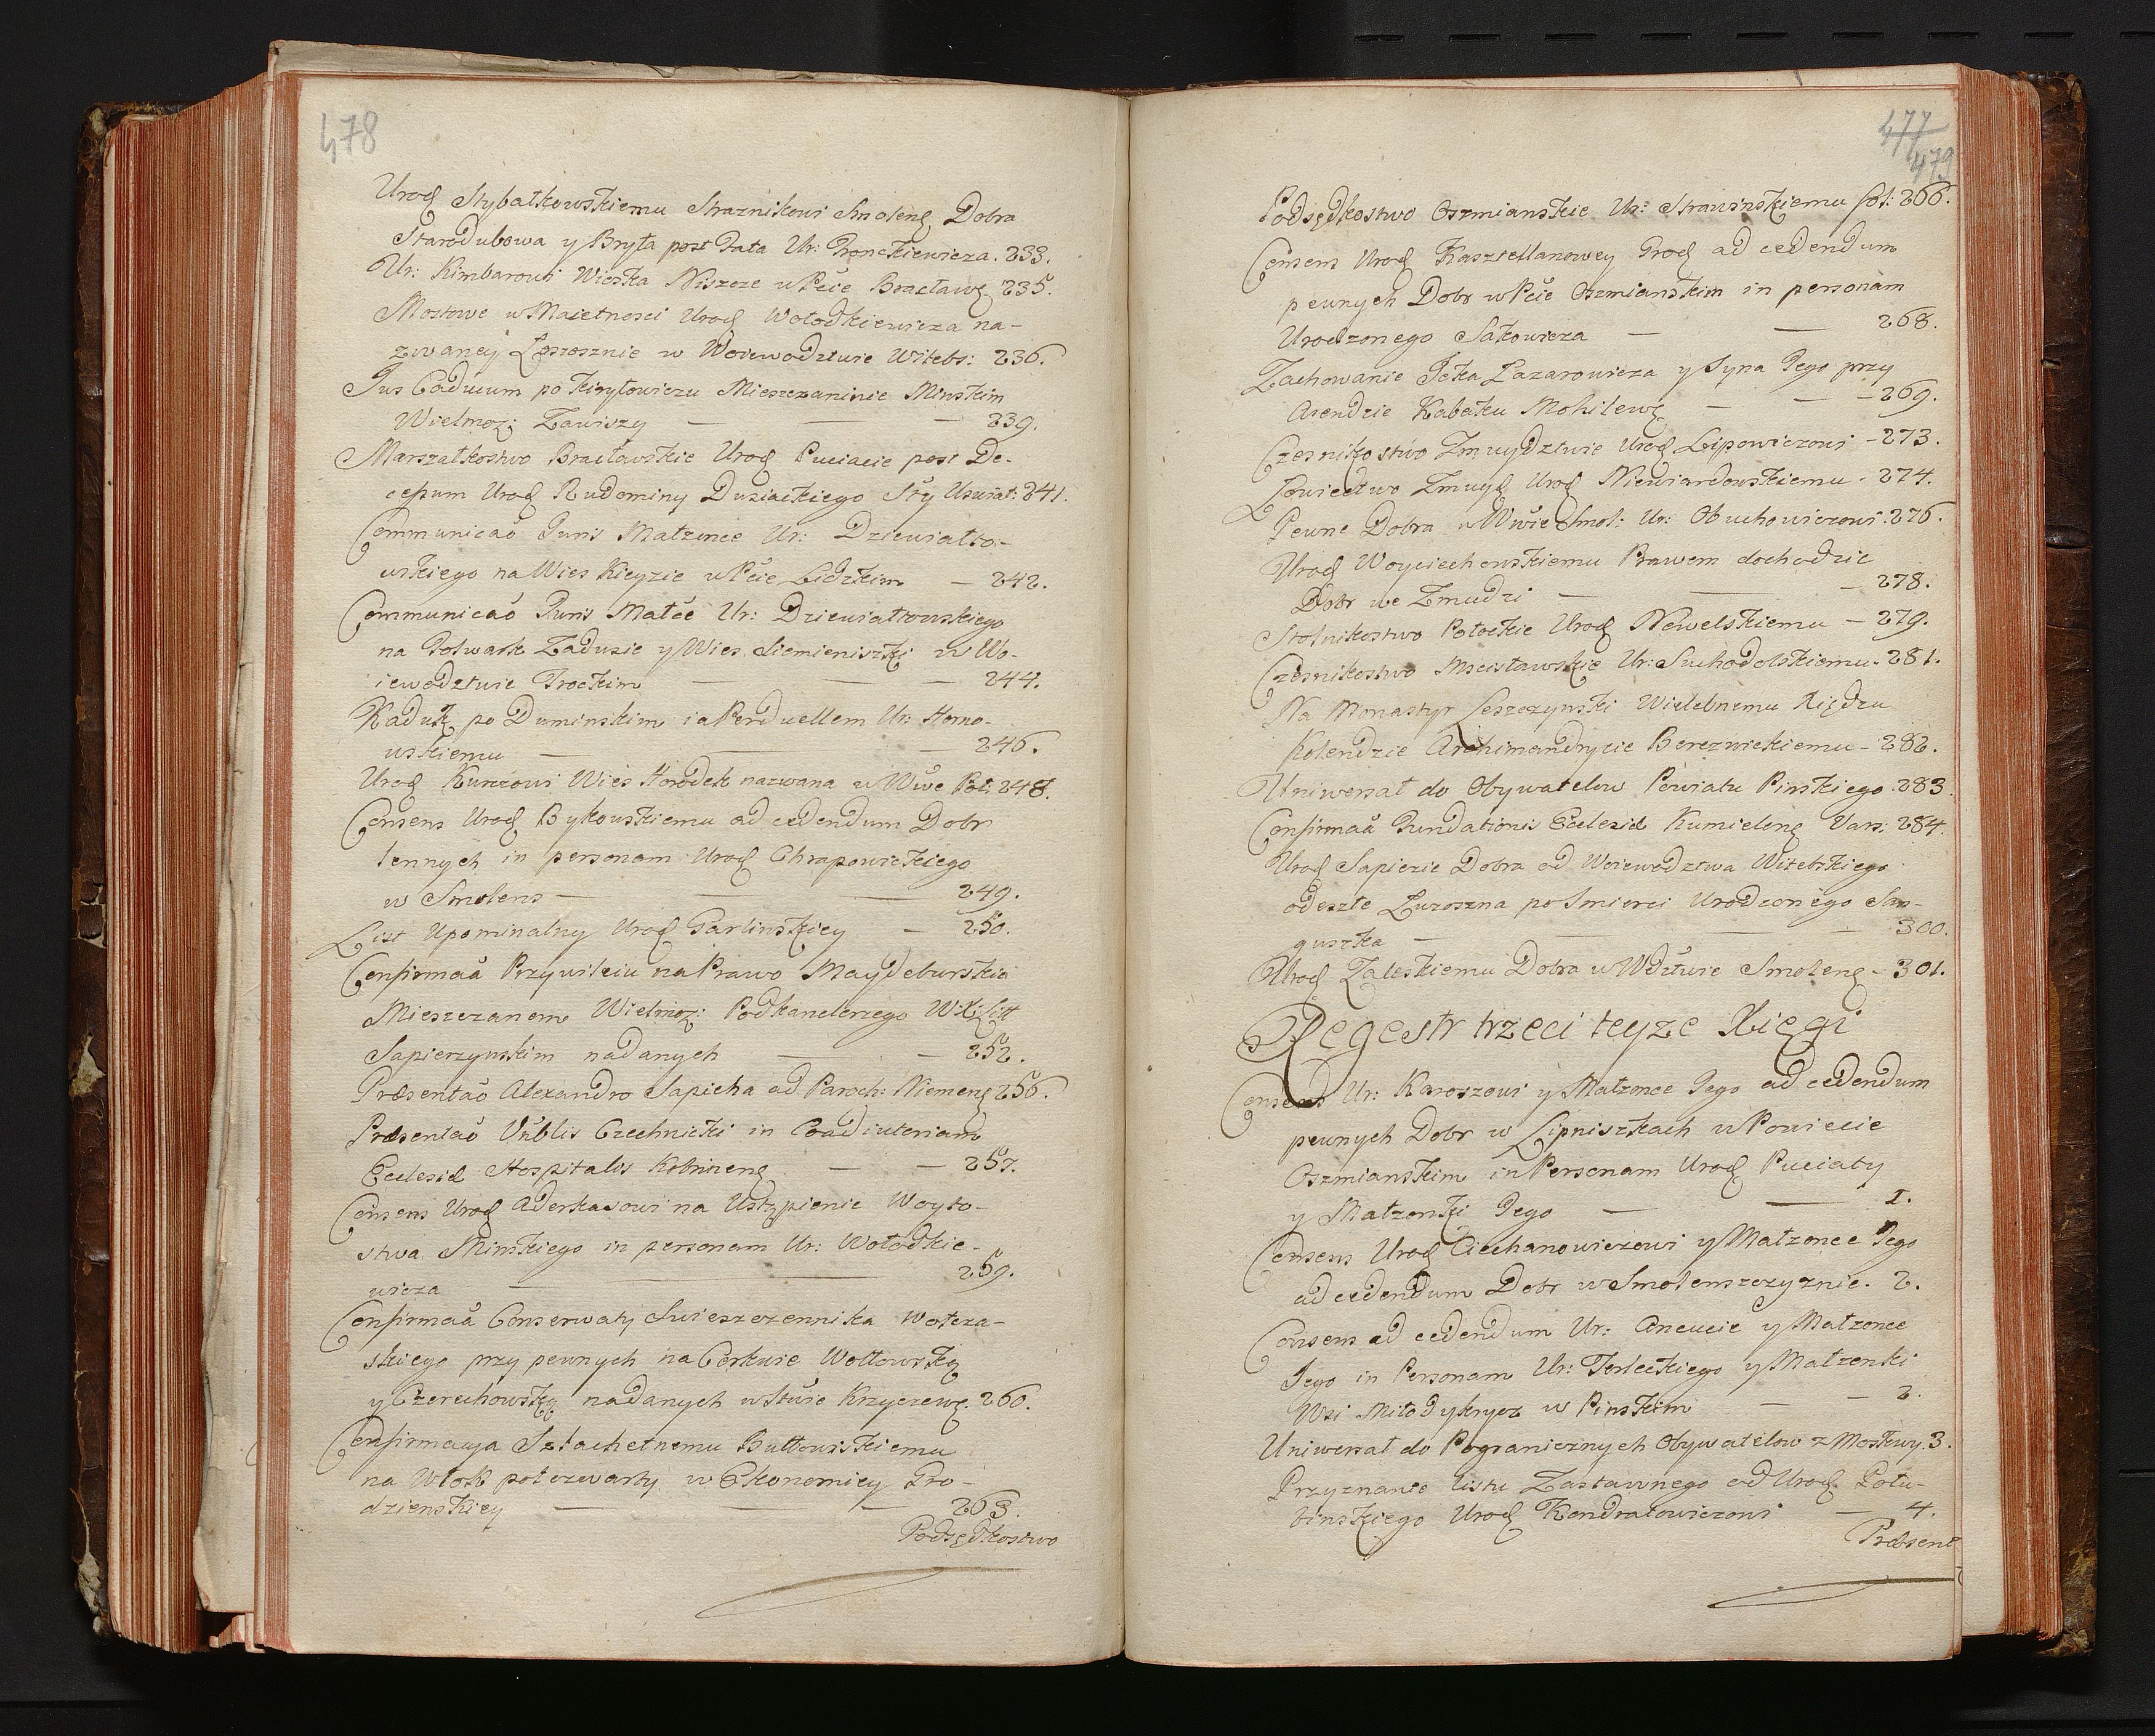 478
Urod Stybałkowskiemu Straznikowi Smolens Dobra
Starodubowa y Bryła post Fata Ur: Pronckiewicza. 233.
Ur: Kimbarowi Wioska Niszcze w Pcie Bracławs 235.
Mostowe w Maiętnosci Urod Wołodkiewicza na-
zwaney Łoszosznie w Woiewodztwie Witebs: 236.
Jus Caducum po Kiryłowiczu Mieszczaninie Minskim
Wielmoz: Zawiszy — — — 239.
Marszałkostwo Bracławskie Urod Puciacie post De-
cessum Urod Rudominy Dusiackiego Sty Uswiat: 241.
Communicao Juris Małzonce Ur: Dziewiałto-
wskiego na Wies Kieyzie w Pcie Lidzkim — 242.
Communicao Juris Małce Ur: Dziewiałtowskiego
na Folwark Zadusie y Wies Siemieniszki w Wo-
iewodztwie Trockim — — — 244.
Kaduk po Duminskim ia Perduellem Ur: Horno-
wskiemu — — — 246.
Urod Kuncowi Wies Horodek nazwana w Wwe Poł: 248.
Consens Urod Bykowskiemu ad cedendum Dobr
lennych in personam Urod Chrapowickiego
w Smolens — — — 249.
List Upominalny Urod Garlinskiey — 250.
Confirmaa Przywileiu na Prawo Maydeburskie
Mieszczanom Wielmoz: Podkanclerzego W.X.Litt
Sapiezynskim nadanych — — 252.
Præsentao Alexandro Sapieha ad Paroch: Niemens 256.
Præsentao Vnblis Czechnicki in Coadiutoriam
Ecclesiæ Hospitalis Kobrinens — — 257.
Consens Urod Aderkasowi na Ustąpienie Woyto-
stwa Minskiego in personam Ur: Wołodkie-
wicza — — — 259.
Confirmaa Conserwaty Swieszczennika Wołcza-
skiego przy pewnych na Cerkwie Wołłowską
y Czerechowską nadanych w Stwie Krzyczews. 260.
Confirmacya Szlachetnemu Bułłowskiemu
na Włok połczwarty w Ekonomiey Gro-
dzienskiey — — — 263.
Podsędkostwo
477
479
Podsędkostwo Oszmianskie Ur: Strawinskiemu fol: 266.
Consens Urod Kasztellanowey Grod ad cedendum
pewnych Dobr w Pcie Oszmianskim in personam
Urodzonego Sakowicza — — 268.
Zachowanie Icka Łazarowicza y Syna Jego przy
Arendzie Kabaku Mohilews — — - 269.
Czesnikostwo Zmuydztwie Urod Lipowiczowi - 273.
Łowiectwo Zmuyd Urod Niewiardowskiemu - 274.
Pewne Dobra w Wwie Smol: Ur: Obuchowiczowi. 276.
Urod Woyciechowskiemu Prawem dochodzic
Dobr we Zmudzi — — — 278.
Stolnikostwo Połockie Urod Newelskiemu — 279.
Czesnikostwo Mscisławskie Ur: Suchodolskiemu. 281.
Na Monastyr Leszczynski Wielebnemu Xiędzu
Kolendzie Archimandrycie Berezwickiemu - 282.
Uniwersał do Obywatelow Powiatu Pinskiego. 283.
Confirmaa Fundationis Ecclesiæ Kumielens Vars: 284.
Urod Sapiezie Dobra od Woiewodztwa Witebskiego
odeszłe Łuzoszna po Smierci Urodzonego San-
guszka — — — — 300.
Urod Zaleskiemu Dobra w Wdztwie Smolens - 301.
Regestr trzeci teyze Xięgi
Consens Ur: Karoszowi y Małzonce Jego ad cedendum
pewnych Dobr w Lipniszkach w Powiecie
Oszmianskim in Personam Urod Puciaty
y Małzonki Jego — — 1.
Consens Urod Ciechanowiczowi y Małzonce Jego
ad cedendum Dobr w Smolenszczyznie. 2.
Consens ad cedendum Ur: Oneucie y Małzonce
Jego in Personam Ur: Terleckiego y Małzonki
Wsi Miłodykrycz w Pinskim — — 2.
Uniwersał do Pogranicznych Obywatelow z Moskwy. 3.
Przyznanie listu Zastawnego od Urod Połu-
binskiego Urod Kondratowiczowi — 4.
Præsent